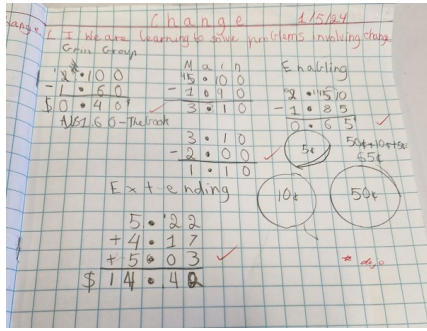 Change 1/5/24
L I We are learning to solve problems involving change
Group
2.100
- 1.60
$0.40
A) $1.60 - The book
Main
5.100
- 1.90
3.10
3.10
- 2.00
1.10
Enabling
2.1510
- 1.85
0.65
5¢
50¢+10¢+5¢
65¢
10¢
50¢
Extending
5.22
+ 4.17
+ 5.03
$14.42
* dojo